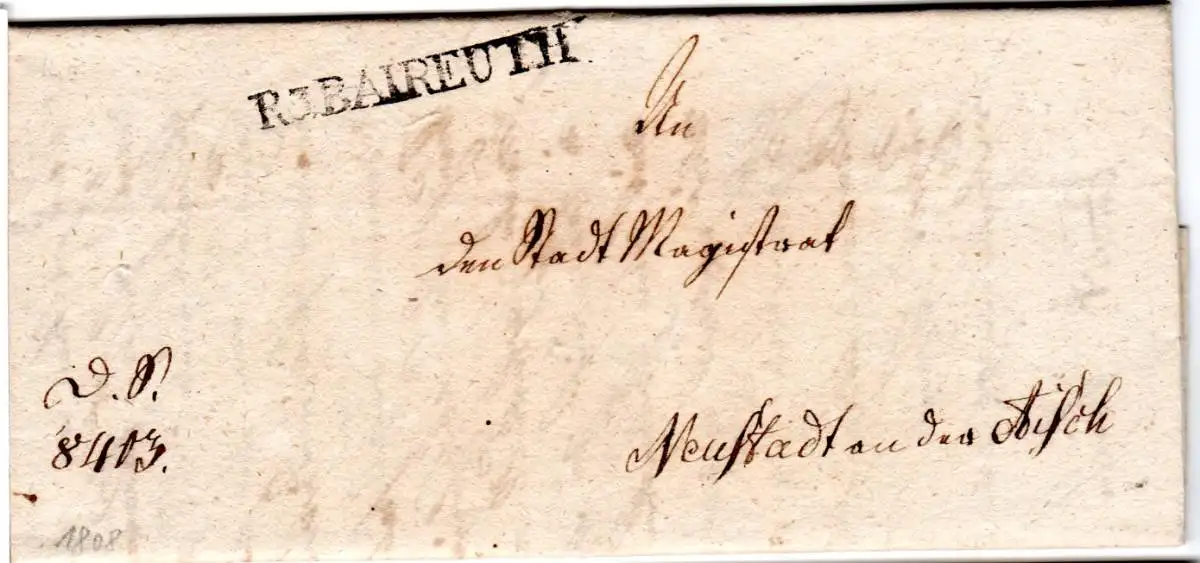 R3.BAIREUTH
An
den Stadt Magistrat
D. S.
8413.
Neustadt an der Aisch
1808